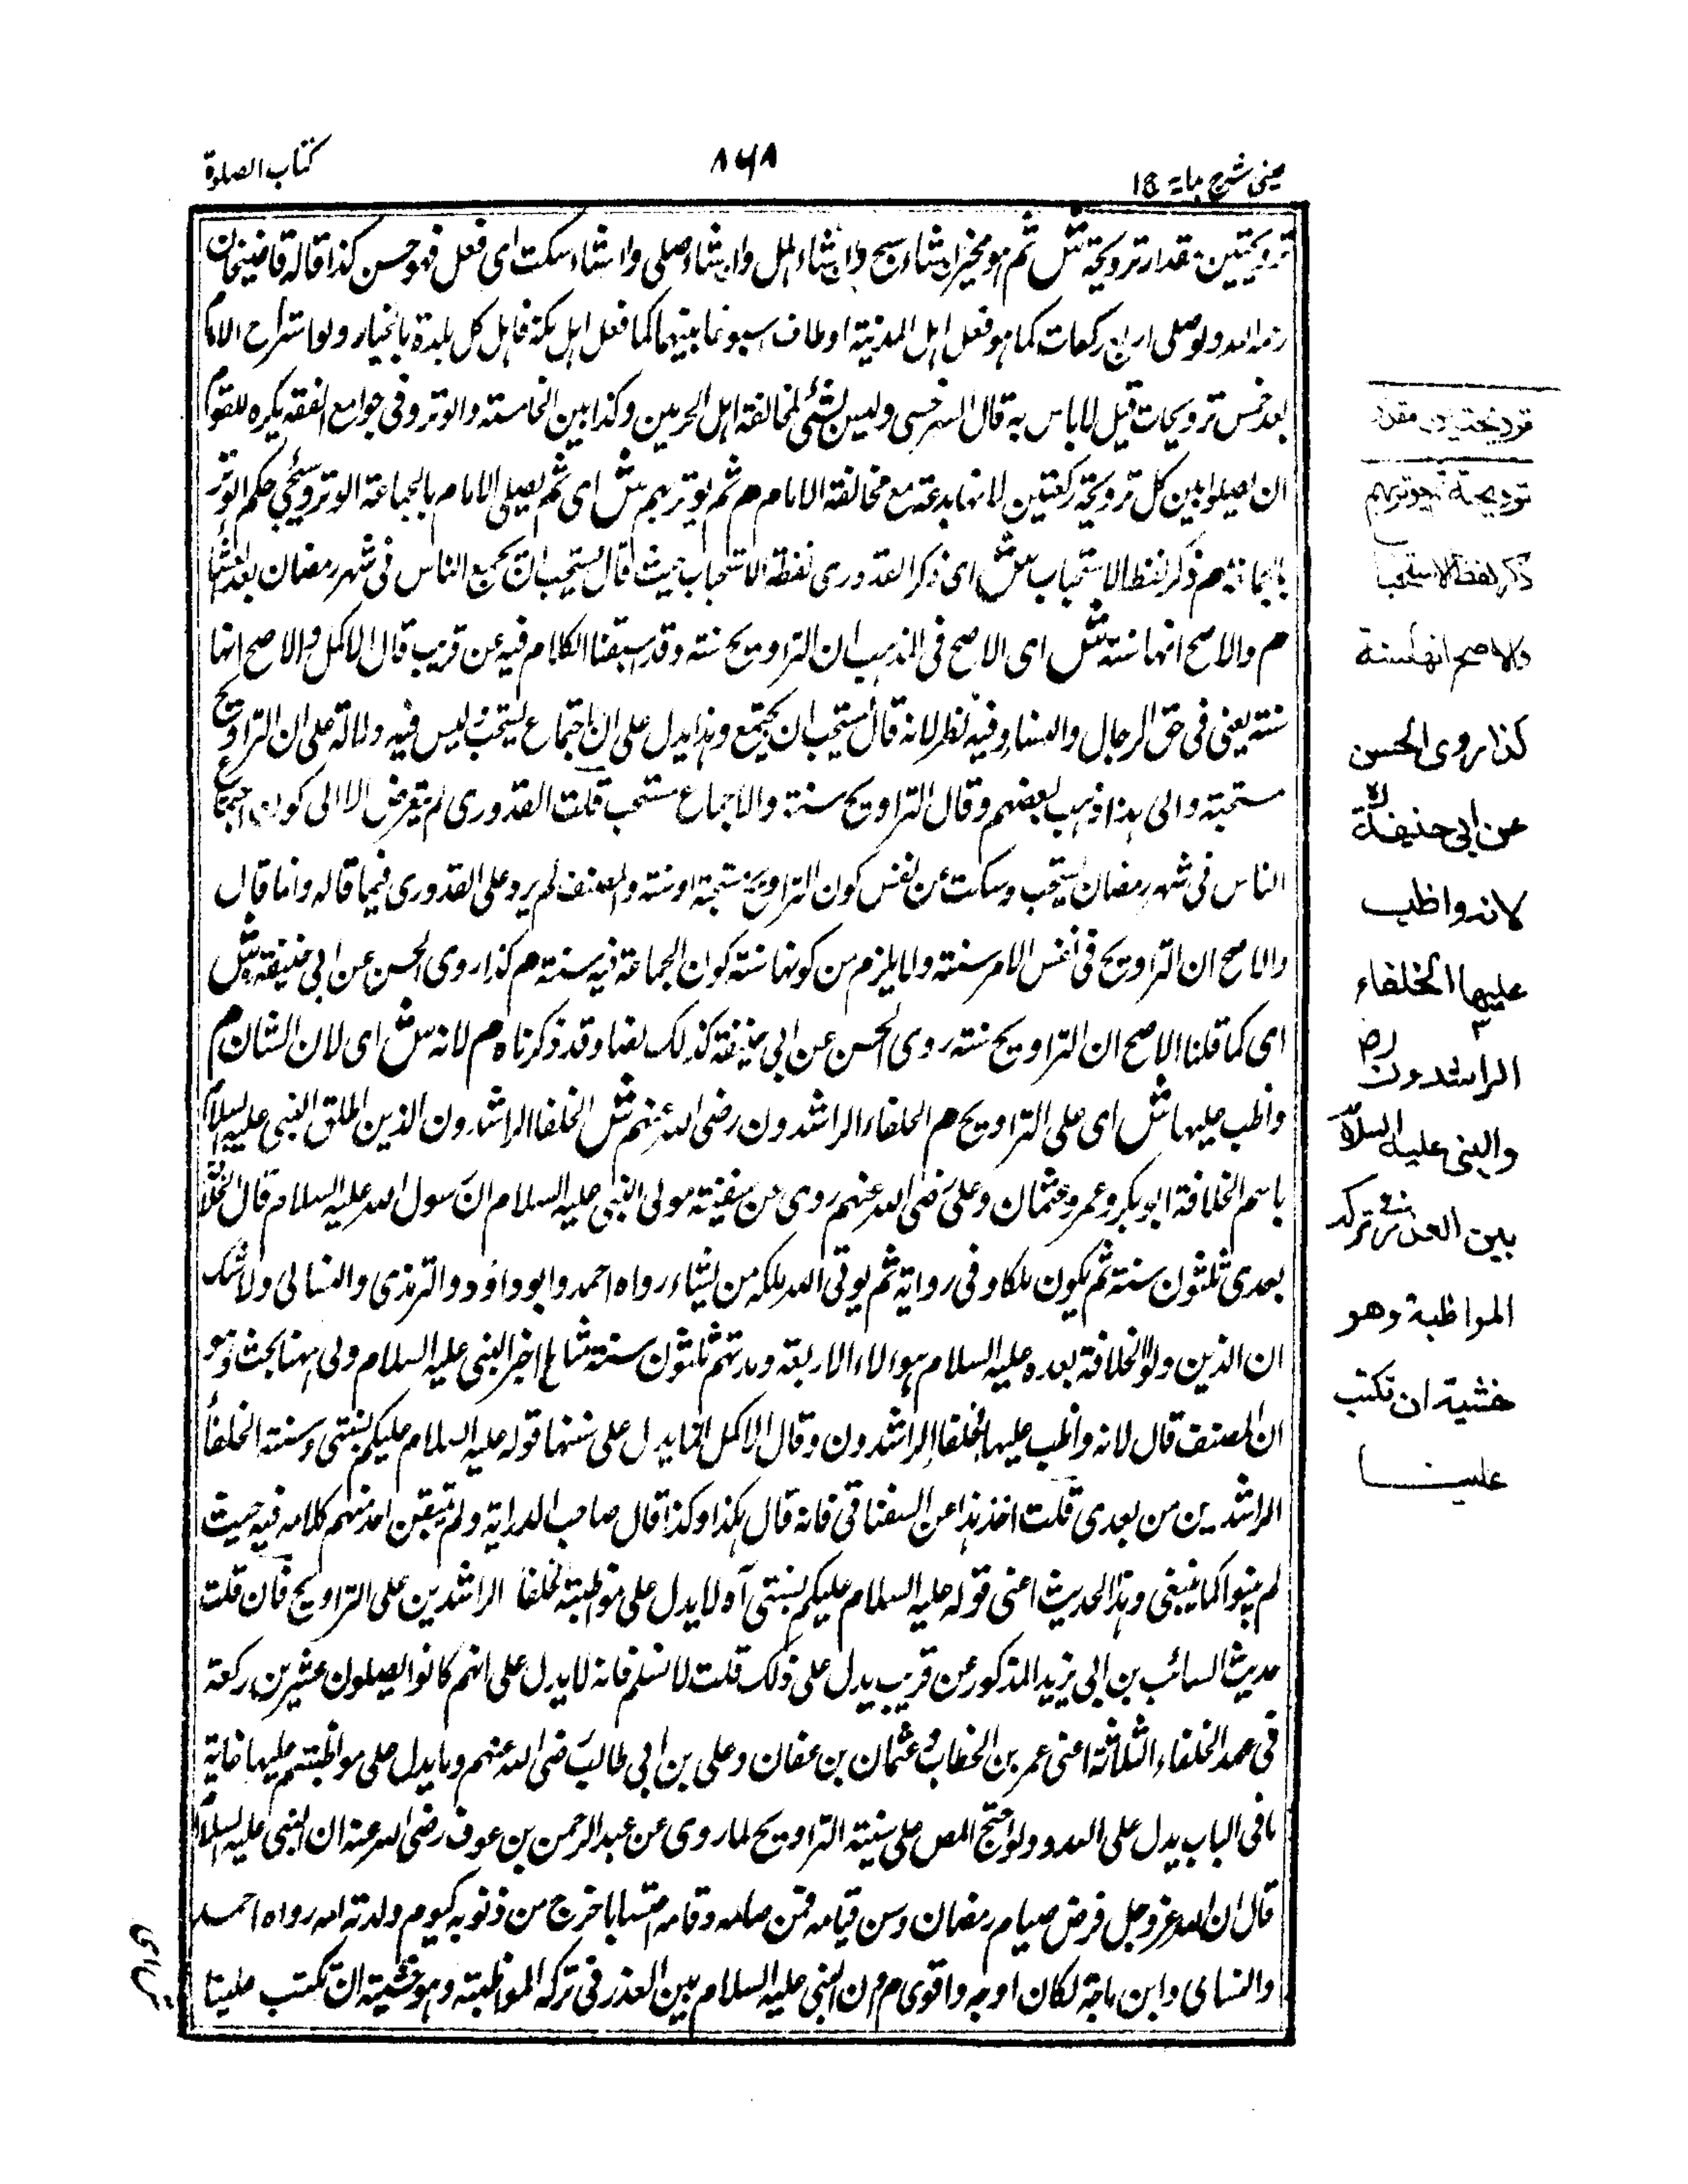 عینی شرح ہدایہ
۸۶۸
کتاب الصلوة
ترویحتین مقدار ترویحة ش ثم هو مخیر ان شاء سبح وان شاء هلل وان شاء صلی وان شاء سکت ای فعل فهو حسن کذا قاله قاضیخان
ولو صلی اربع رکعات کما هو فعل اهل المدینة او طاف اسبوعا بینهما کما فعل اهل مکة فاهل کل بلدة بالخیار ولو استراح الامام
بعد خمس ترویحات قیل لا باس به قال السرخسی ولیس بشئ لمخالفة اهل الحرمین وکذا بین الخامسة والوتر وفی جوامع الفقه یکره للقوم
ان یصلوا بین کل ترویحة رکعتین لانها بدعة مع مخالفة الامام م ثم یوتر بهم ش ای ثم یصلی الامام بالجماعة الوتر وسیجئ حکم الوتر
بالجماعة م ذکر لفظ الاستحباب ش ای ذکر القدوری لفظة الاستحباب حیث قال یستحب ان یجمع الناس فی شهر رمضان بعد العشاء
م والاصح انها سنة ش ای الاصح فی المذهب ان التراویح سنة وقد سبقنا الکلام فیه عن قریب قال الاکمل والاصح انها
سنة یعنی فی حق الرجال والنساء وفیه نظر لانه قال یستحب ان یجتمع وهذا یدل علی ان اجتماع یستحب لیس فیه دلالة علی ان التراویح
مستحبة والی هذا ذهب بعضهم وقال التراویح سنة والاجماع مستحب قلت القدوری لم یتعرض الا الی کون اجتماع
الناس فی شهر رمضان یستحب وسکت عن نفس کون التراویح مستحبة او سنة والمصنف لم یرد علی القدوری فیما قاله وانما قال
والاصح ان التراویح فی نفس الامر سنة ولا یلزم من کونها سنة کون الجماعة فیه سنة م کذا روی الحسن عن ابی حنیفة ش
ای کما قلنا الاصح ان التراویح سنة روی الحسن عن ابی حنیفة کذلک وقد ذکرناه م لانه ش ای لان الشان م
واظب علیها ش ای علی التراویح م الخلفاء الراشدون رضی الله عنهم ش الخلفا الراشدون الذین اطلق النبی علیه السلام
باسم الخلافة ابو بکر وعمر وعثمان وعلی رضی الله عنهم روی عن سفینة مولی النبی علیه السلام ان رسول الله علیه السلام قال الخلافة
بعدی ثلثون سنة ثم یکون ملکا وفی روایة ثم یوتی الله ملکه من یشاء رواه احمد وابو داؤد والترمذی والنسائی ولا شک
ان الذین ولوا الخلافة بعده علیه السلام هؤلاء الاربعة ومدتهم ثلثون سنة اخبر النبی علیه السلام ولی ههنا بحث وهو
ان المصنف قال لانه واظب علیها الخلفا الراشدون وقال الاکمل انما یدل علی سنتها قوله علیه السلام علیکم بسنتی وسنة الخلفاء
الراشدین من بعدی قلت اخذ هذا عن السغناقی فانه قال هکذا وکذا قال صاحب الدرایة ولم یتقن احد منهم کلامه فیه حیث
لم کما ینبغی وهذا الحدیث اعنی قوله علیه السلام علیکم بسنتی آه لا یدل علی مواظبة الخلفا الراشدین علی التراویح فان قلت
حدیث السائب بن ابی یزید المذکور عن قریب یدل علی ذلک قلت لا نسلم فانه لا یدل علی انهم کانوا یصلون عشرین رکعة
فی عهد الخلفاء الثلاثة اعنی عمر بن الخطاب وعثمان بن عفان وعلی بن ابی طالب رضی الله عنهم وما یدل علی مواظبتهم علیها غایة
ما فی الباب یدل علی العدد ولو احتج المص علی سنیة التراویح لما روی عن عبد الرحمن بن عوف رضی الله عنه ان النبی علیه السلام
قال ان الله عز وجل فرض صیام رمضان وسن قیامه فمن صامه وقامه احتسابا خرج من ذنوبه کیوم ولدته امه رواه احمد
والنسائی وابن ماجة لکان اوجه واقوی م والنبی علیه السلام بین العذر فی ترکه المواظبة وهو خشیة ان تکتب علینا
ترویحتین مقدار
ترویحة ثم یوتر بهم
ذکر لفظ الاستحباب
والاصح انها سنة
کذا روی الحسن
عن ابی حنیفة
لانه واظب
علیها الخلفاء
الراشدون رض
والنبی علیه السلام
بین العذر فی ترکه
المواظبة وهو
خشیة ان تکتب
علینا